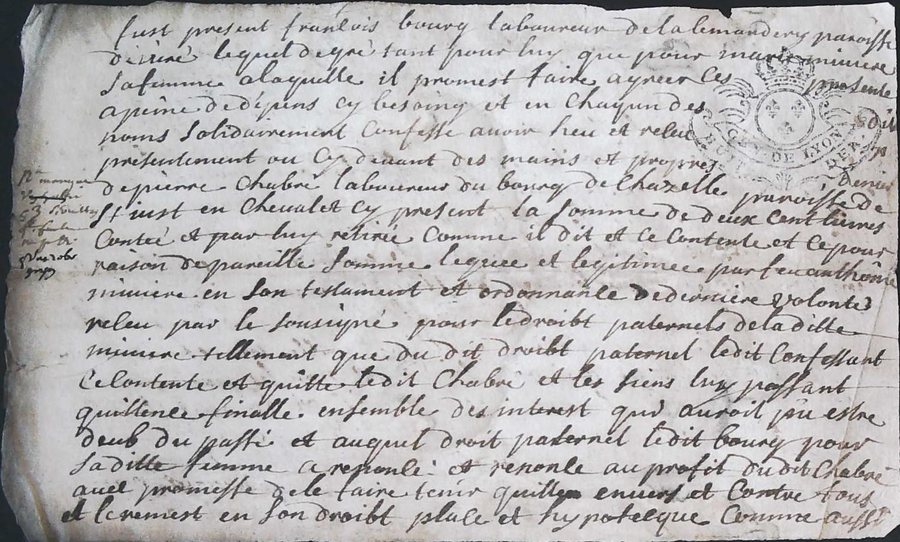 fust present francois bourg laboureur de lalemandery paroisse
de ciré lequel de gré tant pour luy que pour marie miniere
sa femme a laquelle il promest faire agreer ces presente
a peine de depens cy besoing et en chaqun des dit
noms solidairement confesse avoir heu et receu
presentement ou cy devant des mains et propres denier
de pierre Chabré laboureur du bourg de Chazelle paroisse de
St iust en Chevalet cy present la somme de deux cent livres
contée et par luy retirée comme il dit et ce contente et ce pour
raison de pareille somme leguée et legitimée par feu anthoine
miniere en son testament et ordonnance de derniere volonte
receu par le sousigné pour le droibt paternels de la ditte
miniere tellement que du dit droibt paternel ledit confessant
ce contente et quitte ledit Chabré et les siens luy passant
quittence finalle ensemble des interest qui auroit pu estre
deub du passé et auquel droit paternel ledit bourg pour
sa ditte femme a renoncé et renonce au profit du dit Chabré
avec promesse de le faire tenir quitte envers et contre tous
et le remest en son droibt place et hypoteque comme aussi
DE LYON